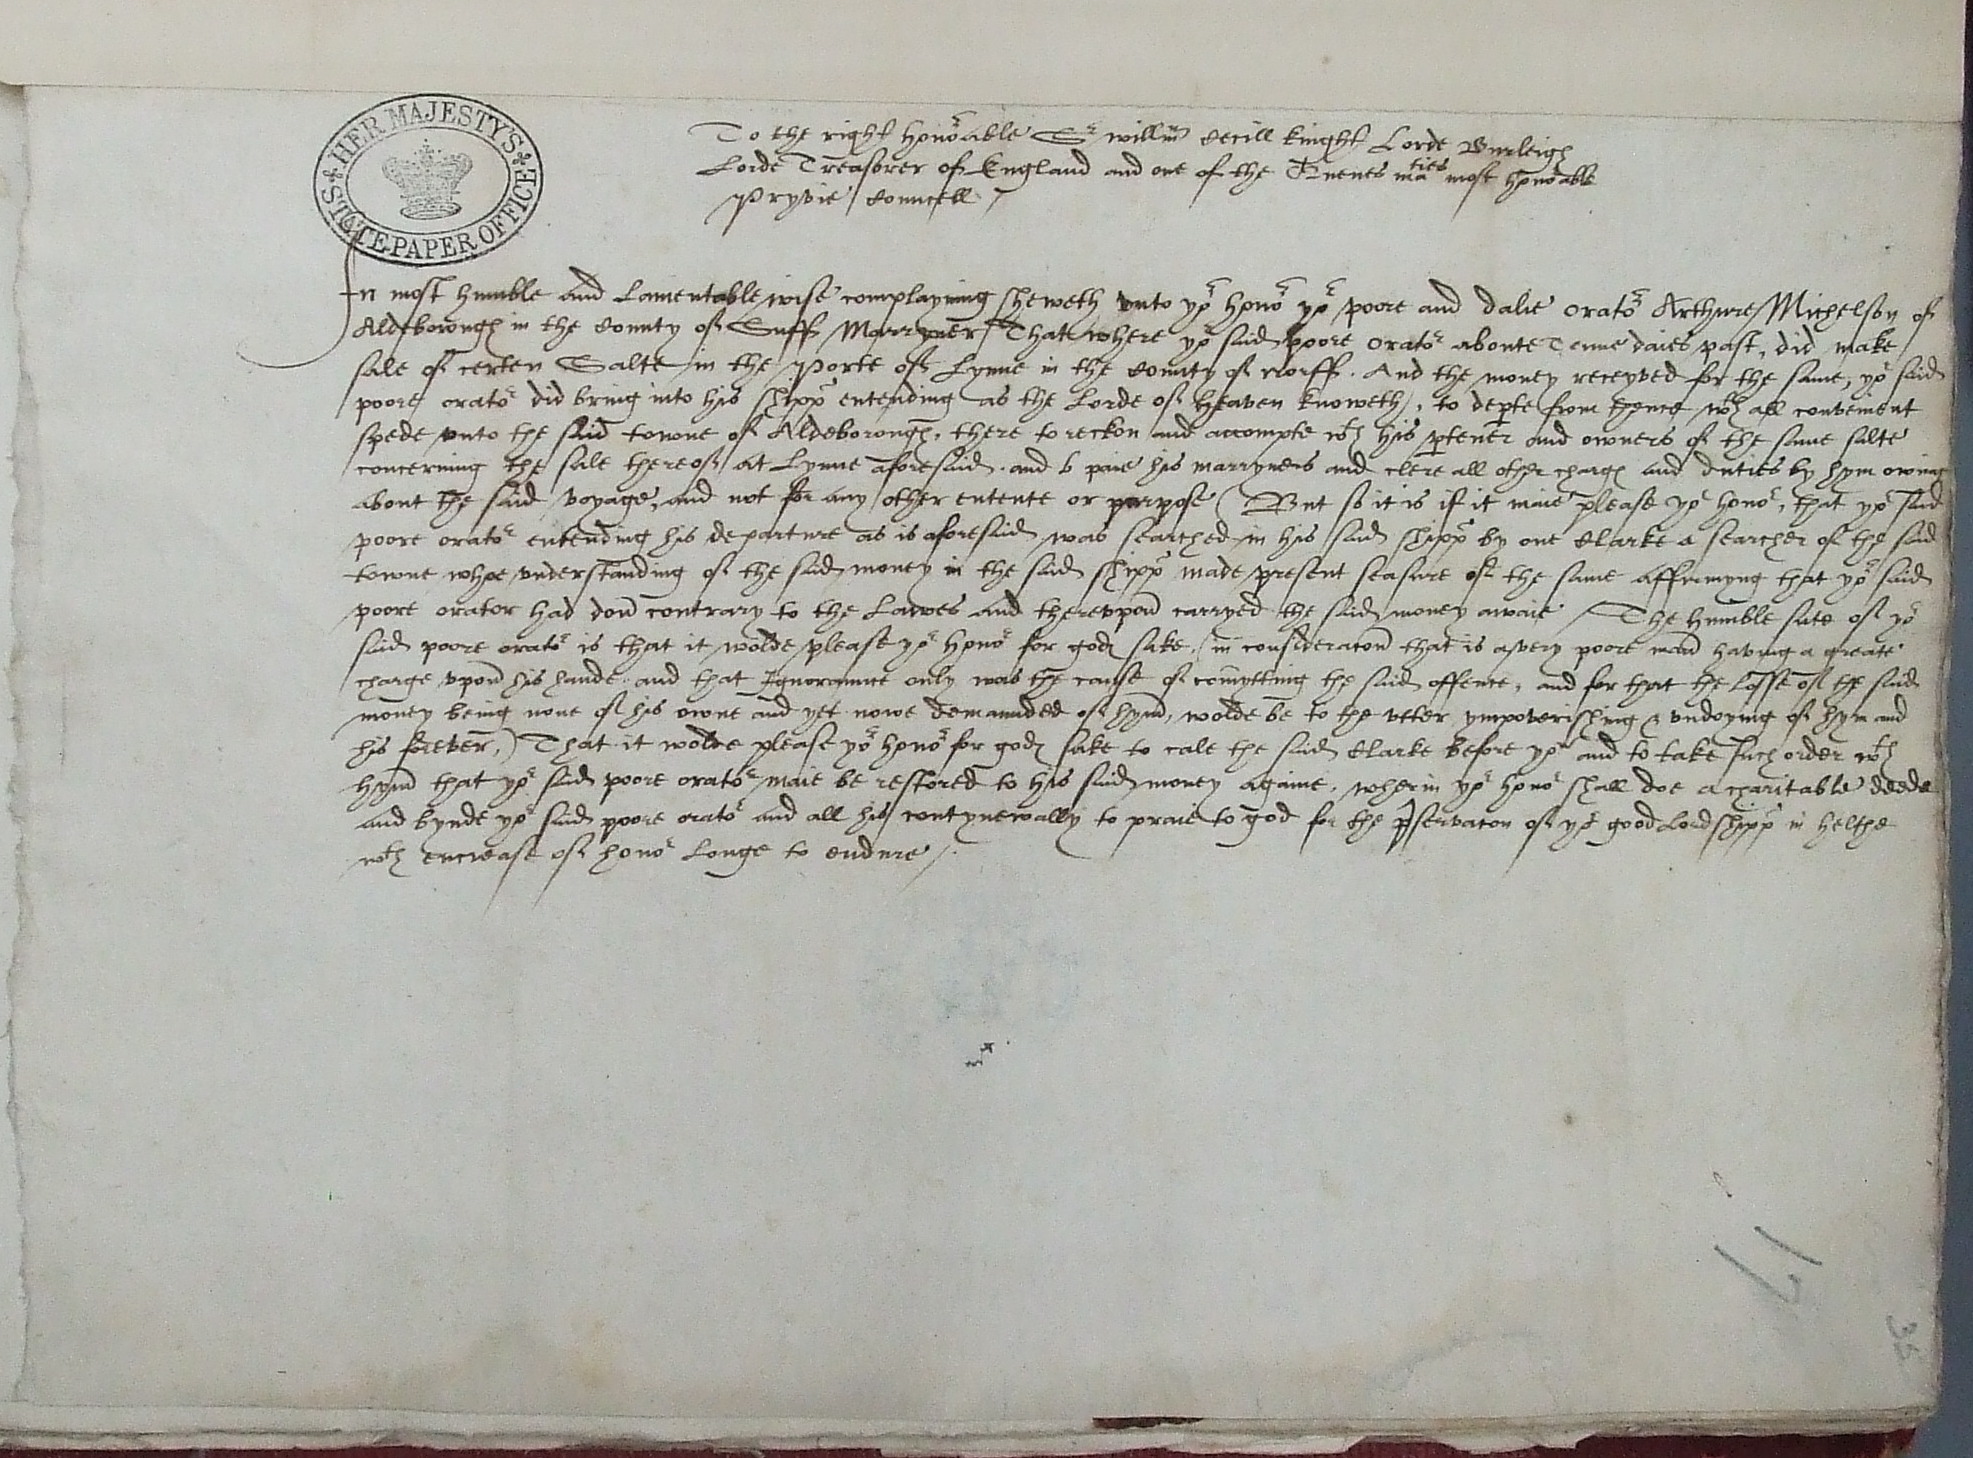 HER MAJESTY'S STATE PAPER OFFICE
To the right hono^r^able S^r^ willm Cecill knight Lorde Burleigh
Lorde Treasorer of England and one of the Quenes ma^ties^ most honorable
Pryvie Councell /
In most humble and Lamentable wise complayning sheweth vnto yo^r^ hono^r^ yo^r^ poore and dalie orato^r^ Arthure Michelson of
Aldeborough in the County of Suff Marryner / That where yo^r^ said poore orato^r^ aboute Tenne daies past, did make
sale of certen Salte in the Porte of Lynne in the County of Norff. And the money receyved for the same, yo^r^ said
poore orato^r^ did bring into his shipp entending as the Lorde of heaven knoweth, to depte from hence w^th^ all convenient
spede vnto the said towne of Aldeborough, there to reckon and accompte w^th^ his ptener and owners of the same salte
concerning the sale thereof at Lynne aforesaid. and to paie his marryners and clere all other charg and duties by hym owing
about the said voyage, and not for any other entente or purpose ( But so it is if it maie please yo^r^ hono^r^, that yo^r^ said
poore orato^r^ entending his departure as is aforesaid was searched in his said shipp by one Clarke a searcher of the said
towne whoe vnderstanding of the said money in the said shipp made present seasure of the same affirmyng that yo^r^ said
poore orator had don contrary to the Lawes and therevpon carryed the said money awaie / The humble sute of yo^r^
said poore orato^r^ is that it wolde please yo^r^ hono^r^ for god sake, (in consideraton that is a very poore man having a greate
charge vpon his hande. and that Ignoraunce only was the cause of comytting the said offence, and for that the Losse of the said
money being none of his owne and yet nowe demaunded of hym, wolde be to the vtter ympoverishing & vndoying of hym and
his forever,) That it wolde please yo^r^ hono^r^ for god sake to cale the said Clarke before yo^u^ and to take such order w^th^
hym that yo^r^ said poore orato^r^ maie be restored to his said money againe. wherin yo^r^ hono^r^ shall doe a charitable deede
and bynde yo^r^ said poore orato^r^ and all his contynewally to praie to god for the pservaton of yo^r^ good Lordshipp in helthe
w^th^ encrease of hono^r^ Longe to endure /.
17